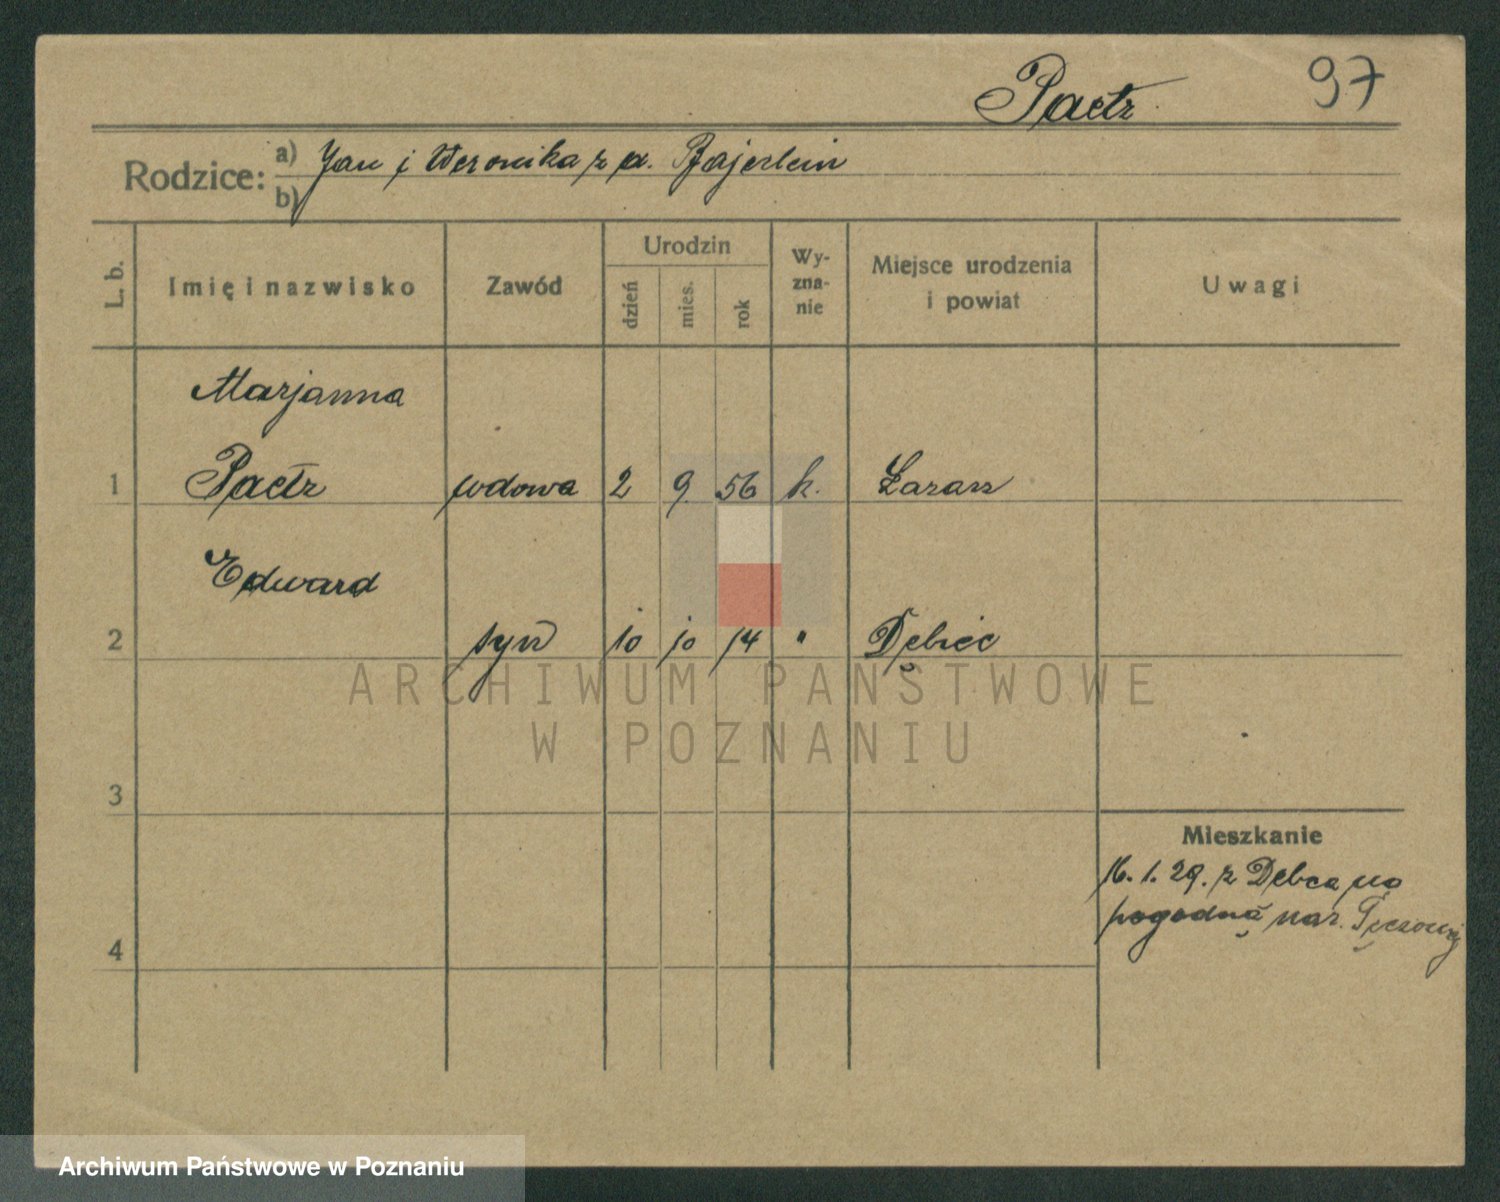 Paetz 97
Rodzice: a) Jan i Weronika z d. Bajerlein
b)
L. b. Imię i nazwisko Zawód Urodzin dzień mies. rok Wy-zna-nie Miejsce urodzenia i powiat Uwagi
Marjanna
1 Paetz wdowa 2 9. 56 k. Łazarz
Edward
2 syn 10 10 14 " Dębiec
ARCHIWUM PAŃSTWOWE
W POZNANIU
3
Mieszkanie
16. 1. 29. z Dębca na
pogodną nar.
4
Archiwum Państwowe w Poznaniu